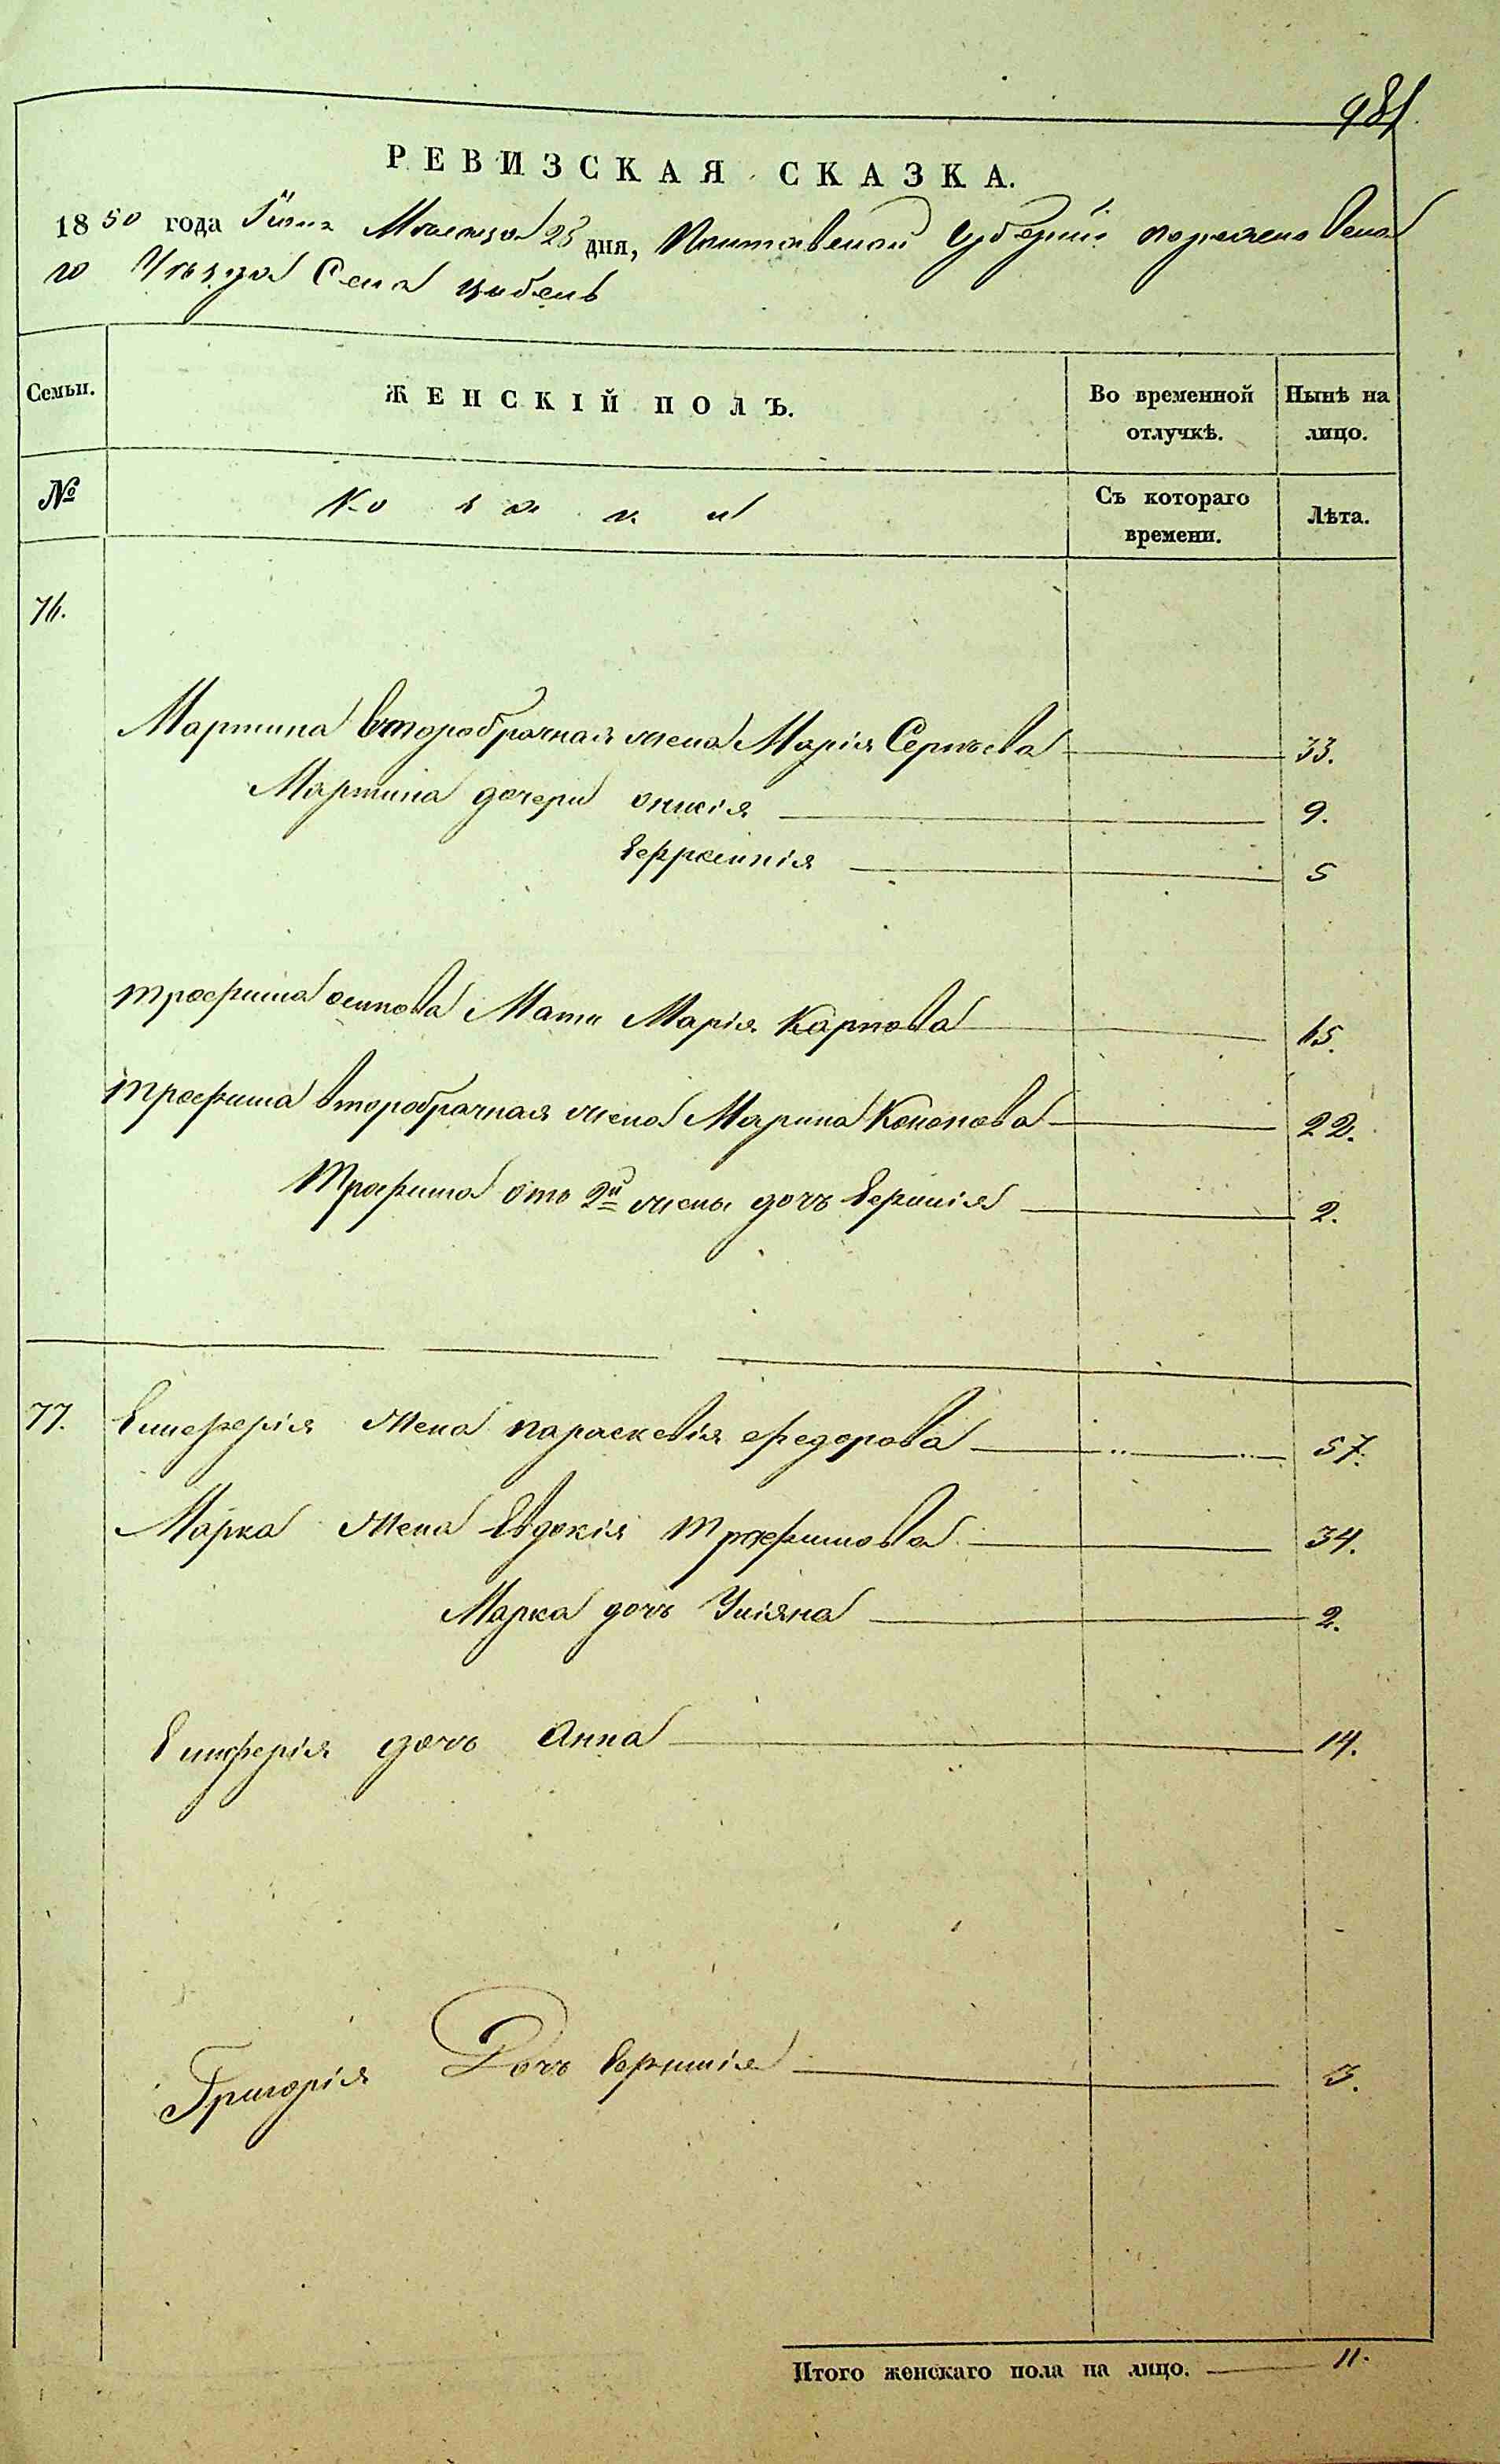 981
РЕВИЗСКАЯ СКАЗКА.
1850 года Іюня Месяца 23 дня, Полтавской Губерніи переяславска
го Уѣзда Села цибель
Семьи.
ЖЕНСКІЙ ПОЛЪ.
Во временной отлучкѣ.
Нынѣ на лицо.
№
Козаки
Съ котораго времени.
Лѣта.
76.
Мартина второбрачная жена Марія Сергѣева 33.
Мартина дочери 9.
Евфросинія 5
трофима осипова Мати Марія Карпова 65.
трофима второбрачная жена Марина Кононова 22.
Трофима отъ 2й жены дочь Ефимія 2.
77. Елиферія жена параскевія федорова 57.
Марка жена Евдокія трофимова 34.
Марка дочь Уліяна 2.
Елиферія дочь Анна 14.
Григорія Дочь Ефимія 3.
Итого женскаго пола на лицо. 11.